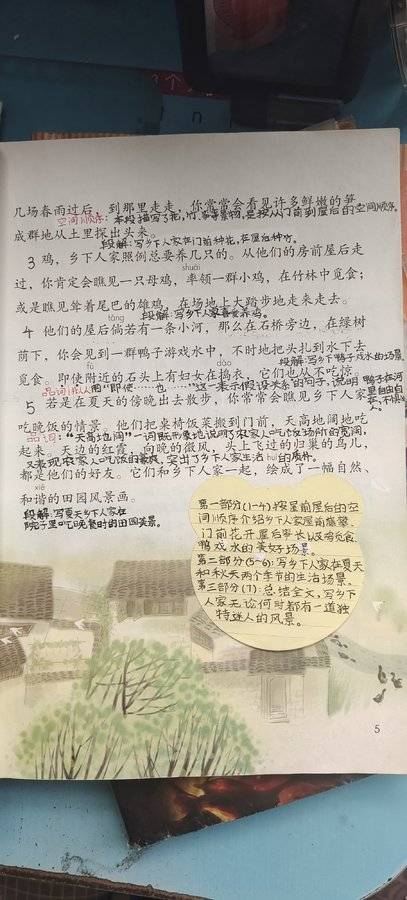 几场春雨过后，到那里走走，你常常会看见许多鲜嫩的笋，
空间顺序：本段描写了花，竹、笋等景物，是按从门前到屋后的空间顺序。
成群地从土里探出头来。
段解：写乡下人家在门前种花，在屋后种竹。
3 鸡，乡下人家照例总要养几只的。从他们的房前屋后走
shuài
过，你肯定会瞧见一只母鸡，率领一群小鸡，在竹林中觅食；
或是瞧见耸着尾巴的雄鸡，在场地上大踏步地走来走去。
tǎng
段解：写乡下人家喜爱养鸡。
4 他们的屋后倘若有一条小河，那么在石桥旁边，在绿树
荫下，你会见到一群鸭子游戏水中，不时地把头扎到水下去
段解：写乡下鸭子戏水的场景。
fù
dǎo
觅食。即使附近的石头上有妇女在捣衣，它们也从不吃惊。
品词析句：用“即使……也……”这一表示假设关系的句子，说明鸭子在河里自由自在，不惧人。
5 若是在夏天的傍晚出去散步，你常常会瞧见乡下人家
吃晚饭的情景。他们把桌椅饭菜搬到门前，天高地阔地吃
品词：“天高地阔”一词既形象地说明了农家人吃饭场所的宽阔，
起来。天边的红霞，向晚的微风，头上飞过的归巢的鸟儿，
又表现农家人吃饭的豪放，突出了乡下人家生活的质朴。
huì
都是他们的好友。它们和乡下人家一起，绘成了一幅自然、
xié
和谐的田园风景画。
段解：写夏天乡下人家在
院子里吃晚餐时的田园美景。
第一部分(1-4)：按屋前屋后的空
间顺序介绍乡下人家屋前搭架、
门前花开屋后笋长以及鸡觅食、
鸭戏水的美好场景。
第二部分(5-6)：写乡下人家在夏天
和秋天两个季节的生活场景。
第三部分(7)：总结全文，写乡下
人家无论何时都有一道独
特迷人的风景。
5